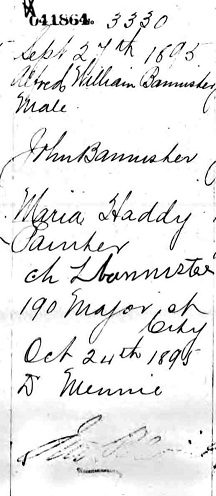 041864. 3330
Sept 27th 1895
Alfred William Bannister
Male.
John Bannister
Maria Haddy
Painter
Bannister
190 Major st
City
Oct 24th 1895
D Mennie